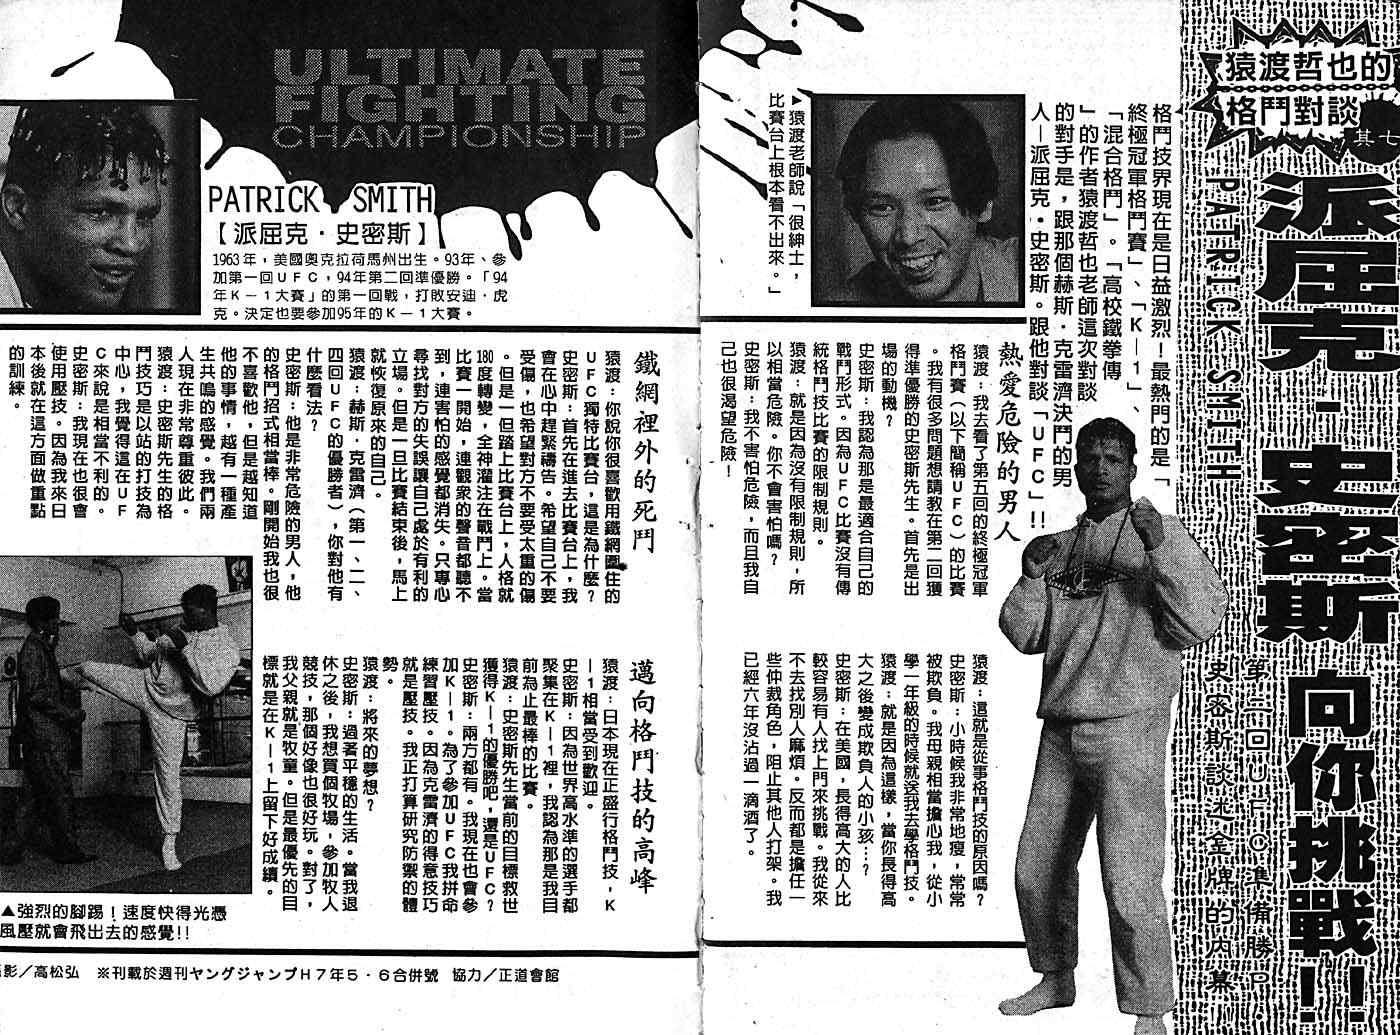 猿渡哲也的
格鬥對談
其七
派屈克・史密斯 向你挑戰!!
PATRICK SMITH
第二回UFC準優勝P.
史密斯談迄金牌的內幕
格鬥技界現在是日益激烈！最熱門的是「
終極冠軍格鬥賽」、「K—1」、
「混合格鬥」。「高校鐵拳傳
」的作者猿渡哲也老師這次對談
的對手是，跟那個赫斯・克雷濟決鬥的男
人—派屈克・史密斯。跟他對談「UFC」!!
▶猿渡老師說「很紳士，
比賽台上根本看不出來。」
熱愛危險的男人
猿渡：我去看了第五回的終極冠軍
格鬥賽（以下簡稱UFC）的比賽
。我有很多問題想請教在第二回獲
得準優勝的史密斯先生。首先是出
場的動機？
史密斯：我認為那是最適合自己的
戰鬥形式。因為UFC比賽沒有傳
統格鬥技比賽的限制規則。
猿渡：就是因為沒有限制規則，所
以相當危險。你不會害怕嗎？
史密斯：我不害怕危險，而且我自
己也很渴望危險！
猿渡：這就是從事格鬥技的原因嗎？
史密斯：小時候我非常地瘦，常常
被欺負。我母親相當擔心我，從小
學一年級的時候就送我去學格鬥技。
猿渡：就是因為這樣，當你長得高
大之後變成欺負人的小孩…？
史密斯：在美國，長得高大的人比
較容易有人找上門來挑戰。我從來
不去找別人麻煩。反而都是擔任一
些仲裁角色，阻止其他人打架。我
已經六年沒沾過一滴酒了。
ULTIMATE
FIGHTING
CHAMPIONSHIP
PATRICK SMITH
【派屈克・史密斯】
1963年，美國奧克拉荷馬州出生。93年、參
加第一回UFC，94年第二回準優勝。「94
年K—1大賽」的第一回戰，打敗安迪・虎
克。決定也要參加95年的K—1大賽。
鐵網裡外的死鬥
猿渡：你說你很喜歡用鐵網圍住的
UFC獨特比賽台，這是為什麼？
史密斯：首先在進去比賽台上，我
會在心中趕緊禱告。希望自己不要
受傷，也希望對方不要受太重的傷
。但是一但踏上比賽台上，人格就
180度轉變，全神灌注在戰鬥上。當
比賽一開始，連觀眾的聲音都聽不
到，連害怕的感覺都消失。只專心
尋找對方的失誤讓自己處於有利的
立場。但是一旦比賽結束後，馬上
就恢復原來的自己。
猿渡：赫斯・克雷濟（第一、二、
四回UFC的優勝者），你對他有
什麼看法？
史密斯：他是非常危險的男人，他
的格鬥招式相當棒。剛開始我也很
不喜歡他，但是越知道
他的事情，越有一種產
生共鳴的感覺。我們兩
人現在非常尊重彼此。
猿渡：史密斯先生的格
鬥技巧是以站的打技為
中心，我覺得這在UF
C來說是相當不利的。
史密斯：我現在也很會
使用壓技。因為我來日
本後就在這方面做重點
的訓練。
邁向格鬥技的高峰
猿渡：日本現在正盛行格鬥技，K
—1相當受到歡迎。
史密斯：因為世界高水準的選手都
聚集在K—1裡，我認為那是我目
前為止最棒的比賽。
猿渡：史密斯先生當前的目標救世
獲得K—1的優勝吧，還是UFC？
史密斯：兩方都有。我現在也會參
加K—1。為了參加UFC我拼命
練習壓技。因為克雷濟的得意技巧
就是壓技。我正打算研究防禦的體
勢。
猿渡：將來的夢想？
史密斯：過著平穩的生活。當我退
休之後，我想買個牧場，參加牧人
競技，那個好像也很好玩。對了，
我父親就是牧童。但是最優先的目
標就是在K—1上留下好成績。
▲強烈的腳踢！速度快得光憑
風壓就會飛出去的感覺!!
影／高松弘 ※刊載於週刊ヤングジャンプH7年5・6合併號 協力／正道會館